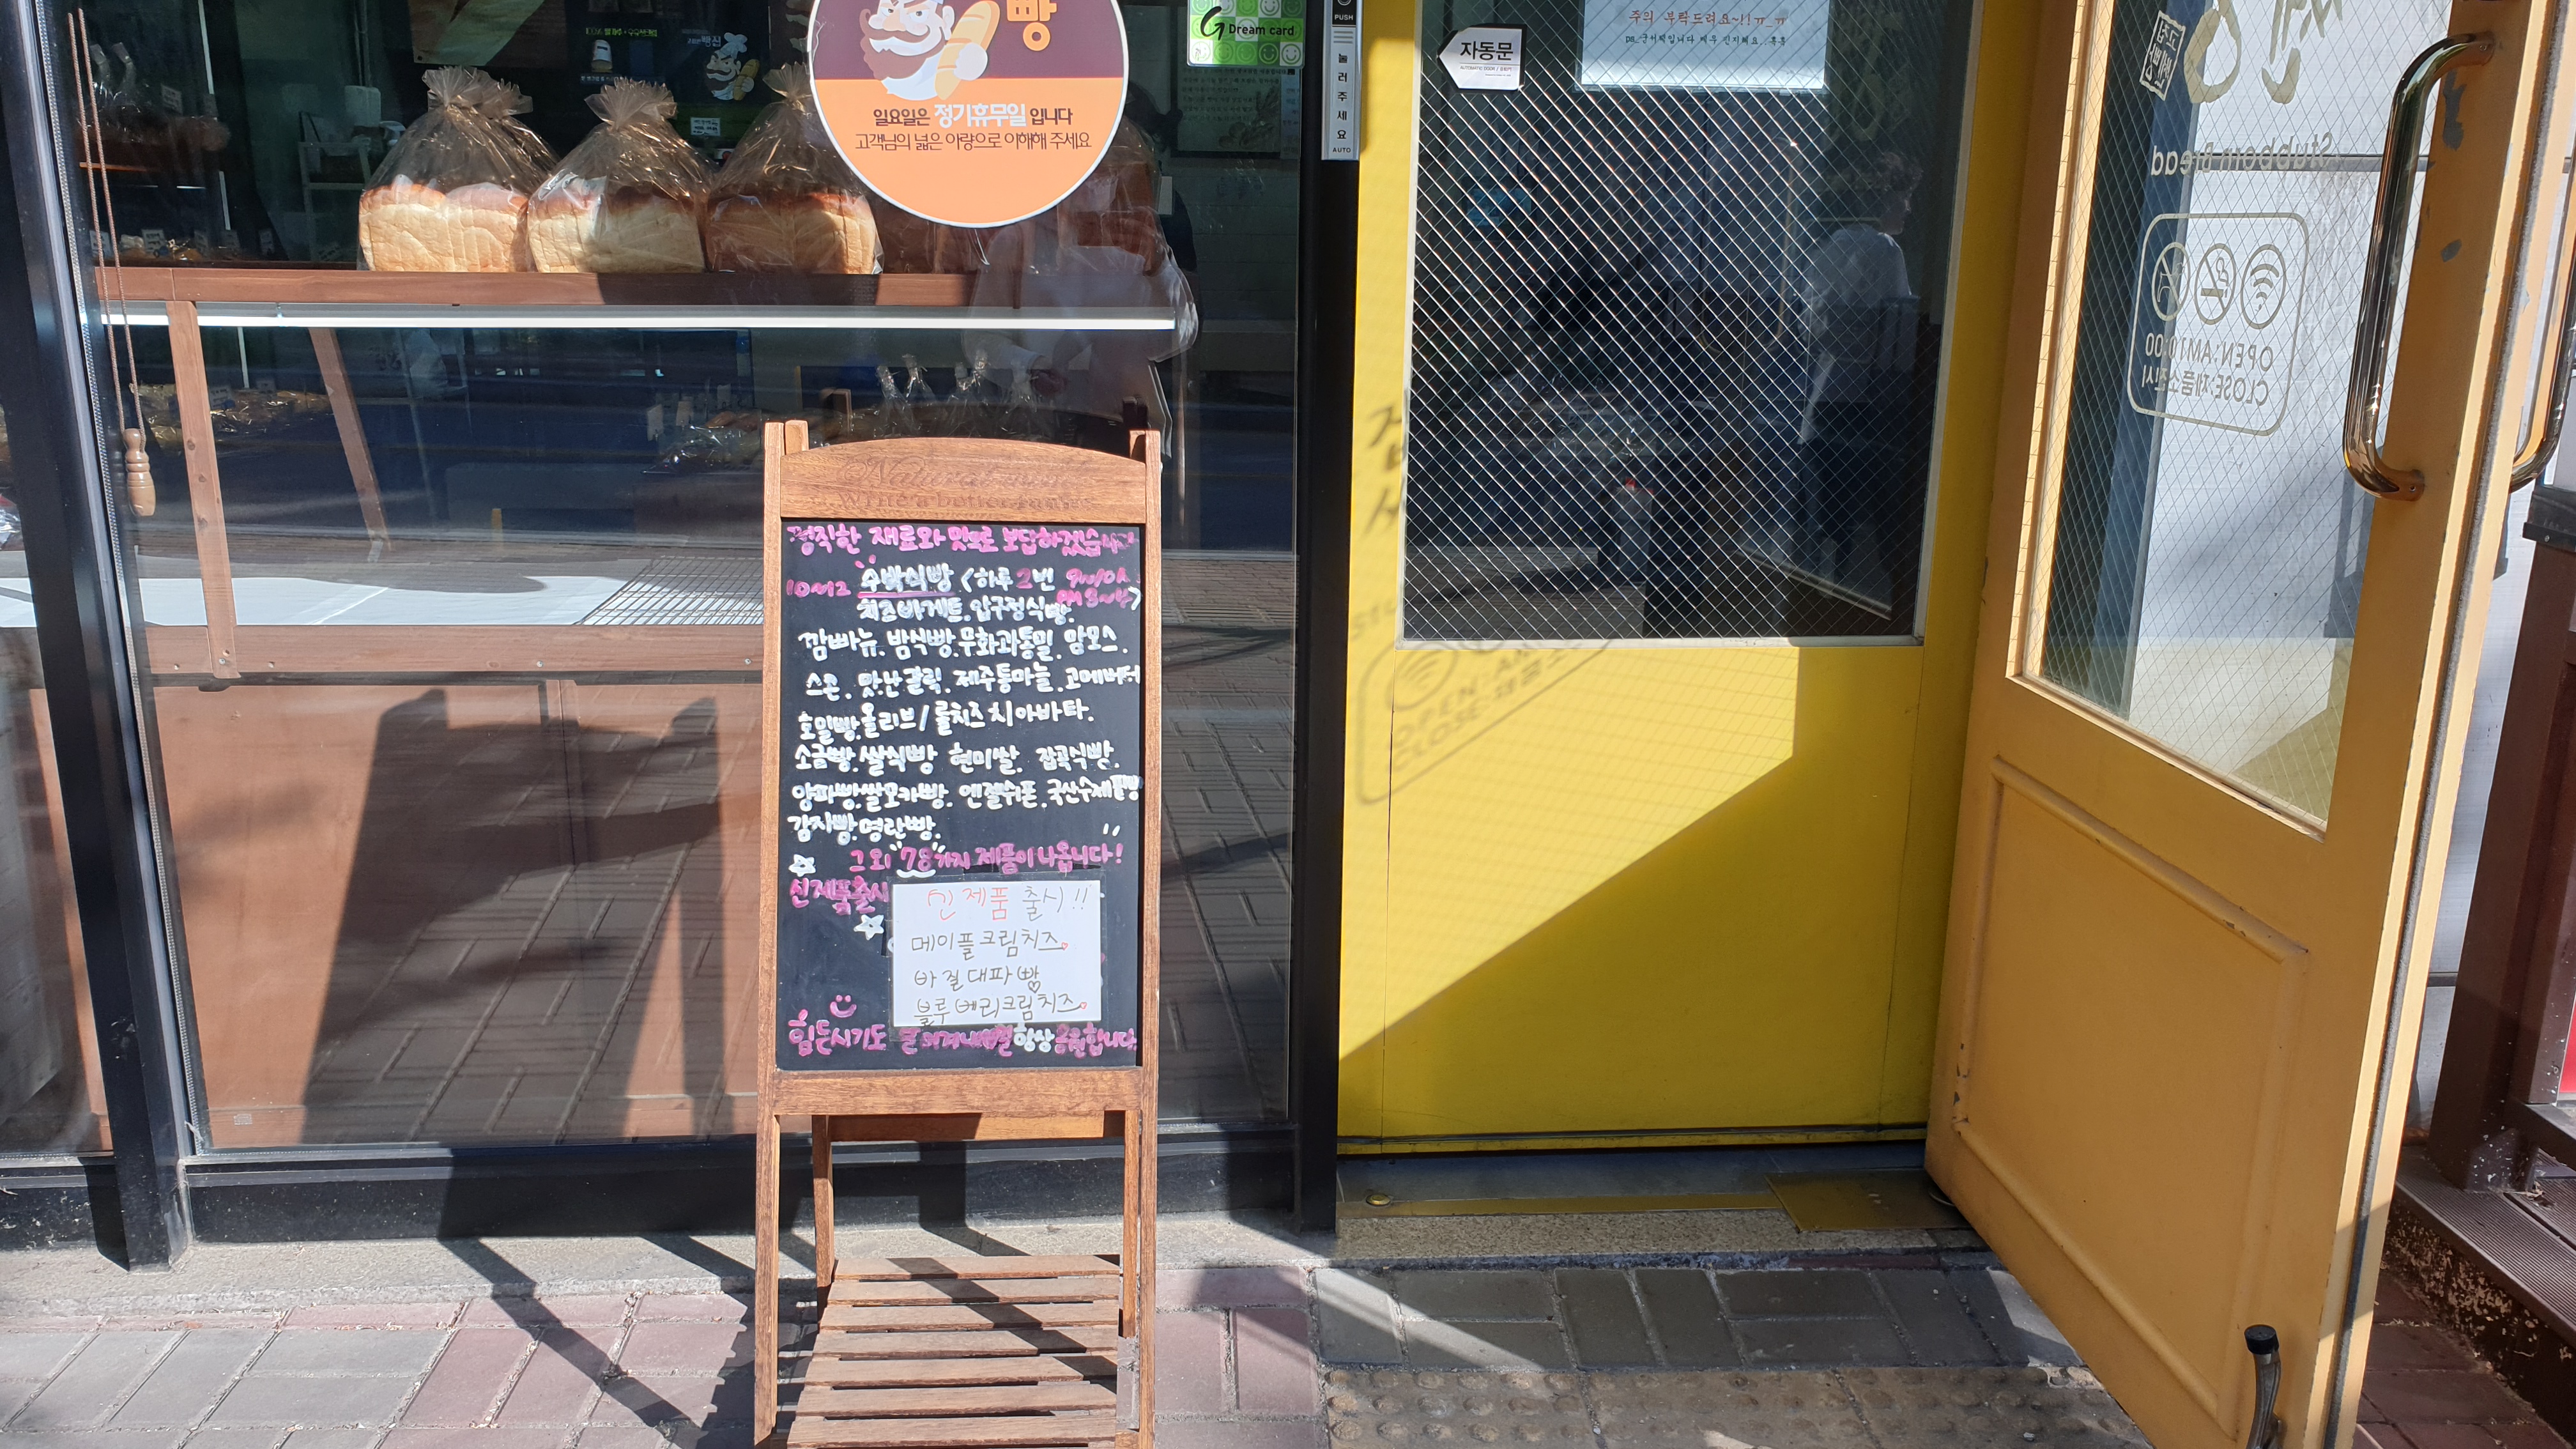 빵
일요일은 정기휴무일 입니다
고객님의 넓은 아량으로 이해해 주세요
G Dream card
PUSH
눌러주세요
AUTO
자동문
주의 부탁드려요~!!ㅠㅠ
Stubborn Bread
OPEN:AM10:00
CLOSE:제품소진시
정직한 재료와 맛으로 보답하겠습니다
수박식빵 <하루 2번
치즈바게트. 압구정식빵.
깜빠뉴. 밤식빵. 무화과통밀. 맘모스.
스콘. 맛난갈릭. 제주통마늘. 고메버터
호밀빵. 올리브/롤치즈 치아바타.
소금빵. 쌀식빵 현미쌀. 잡곡식빵.
양파빵. 쌀모카빵. 엔젤쉬폰. 국산수제팥빵
감자빵. 명란빵.
그 외 "78"가지 제품이 나옵니다!
신제품출시
신제품 출시!!
메이플크림치즈
바질대파빵
블루베리크림치즈
힘든시기도 잘 항상 응원합니다.